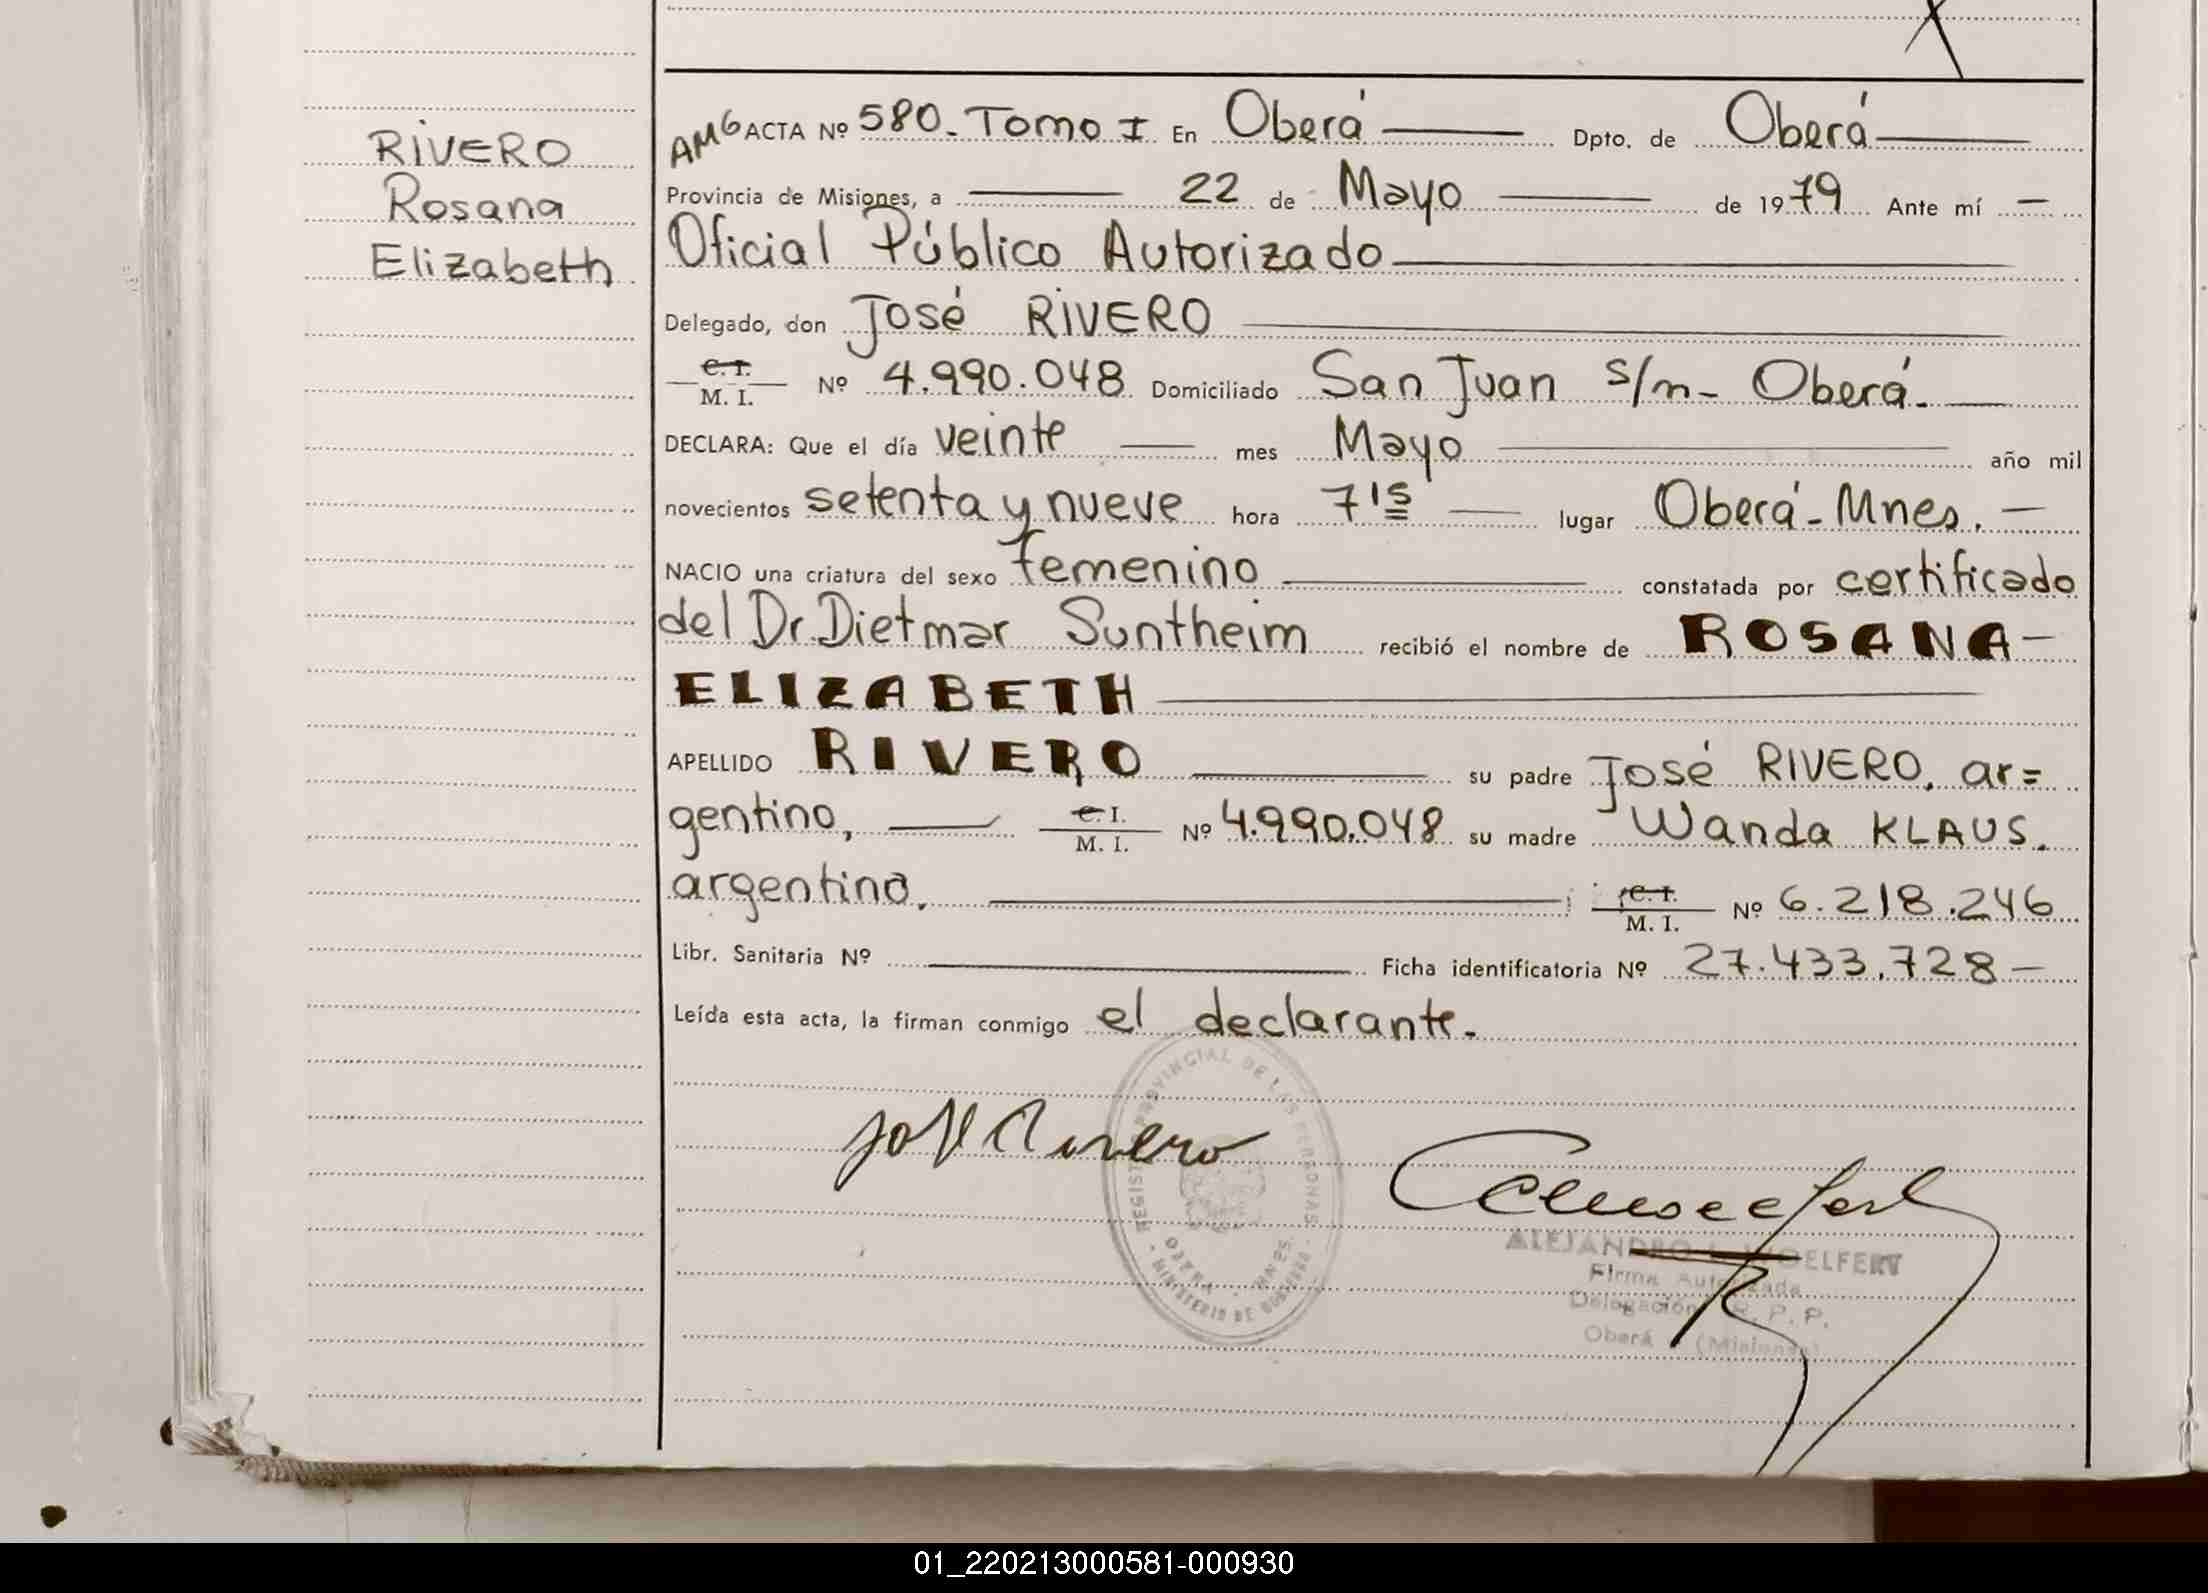 RIVERO
Rosana
Elizabeth
AMG ACTA Nº 580. Tomo I En Oberá Dpto. de Oberá
Provincia de Misiones, a 22 de Mayo de 1979 Ante mí
Oficial Público Autorizado
Delegado, don José RIVERO
C. I. / M. I. Nº 4.990.048 Domiciliado San Juan s/n- Oberá.
DECLARA: Que el día veinte mes Mayo año mil
novecientos setenta y nueve hora 7'15 lugar Oberá-Mnes.
NACIO una criatura del sexo femenino constatada por certificado
del Dr. Dietmar Suntheim recibió el nombre de ROSANA-
ELIZABETH
APELLIDO RIVERO su padre José RIVERO, ar=
gentino, C. I. / M. I. Nº 4.990.048 su madre Wanda KLAUS.
argentina, C. I. / M. I. Nº 6.218.246
Libr. Sanitaria Nº Ficha identificatoria Nº 27.433.728-
Leída esta acta, la firman conmigo el declarante.
REGISTRO PROVINCIAL DE LAS PERSONAS
MINISTERIO DE GOBIERNO
José Rivero
ALEJANDRO L. WOELFERT
Firma Autorizada
Delegación R. P. P.
Oberá (Misiones)
01_220213000581-000930